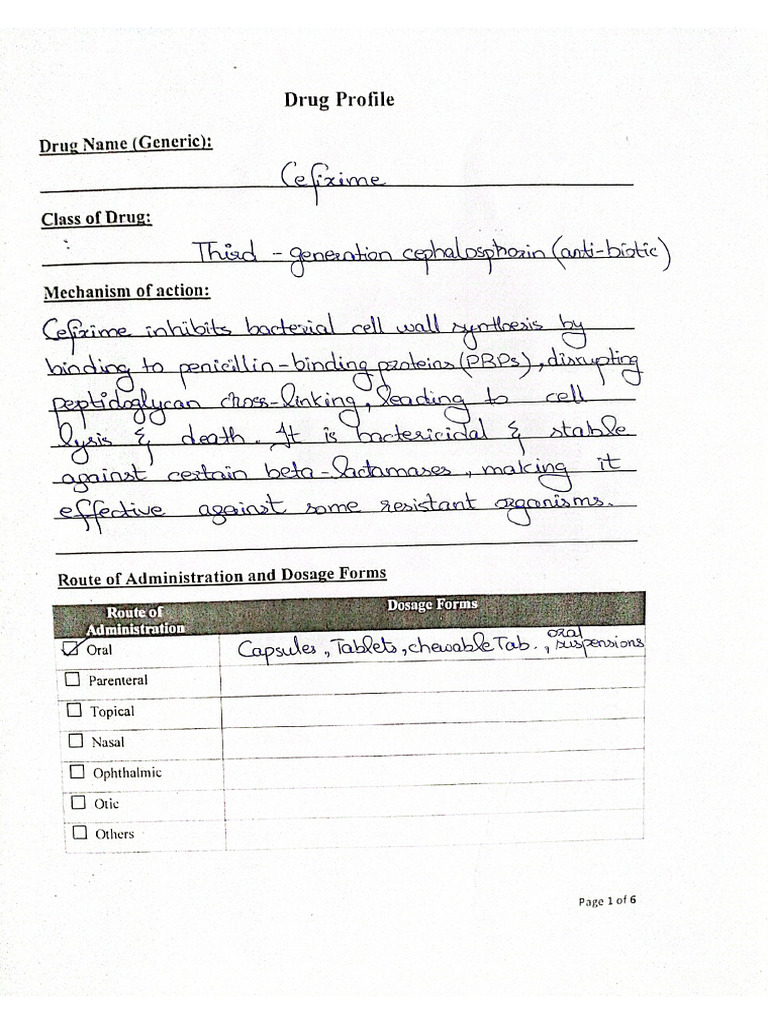 Drug Profile
Drug Name (Generic):
Cefixime
Class of Drug:
Third - generation cephalosphorin (anti-biotic)
Mechanism of action:
Cefixime inhibits bacterial cell wall synthesis by
binding to penicillin-binding proteins (PBPs), disrupting
peptidoglycan cross-linking, leading to cell
lysis & death. It is bactericidal & stable
against certain beta-lactamases, making it
effective against some resistant organisms.
Route of Administration and Dosage Forms
Route of Administration Dosage Forms
☑ Oral Capsules, Tablets, chewable Tab., oral suspensions
☐ Parenteral
☐ Topical
☐ Nasal
☐ Ophthalmic
☐ Otic
☐ Others
Page 1 of 6